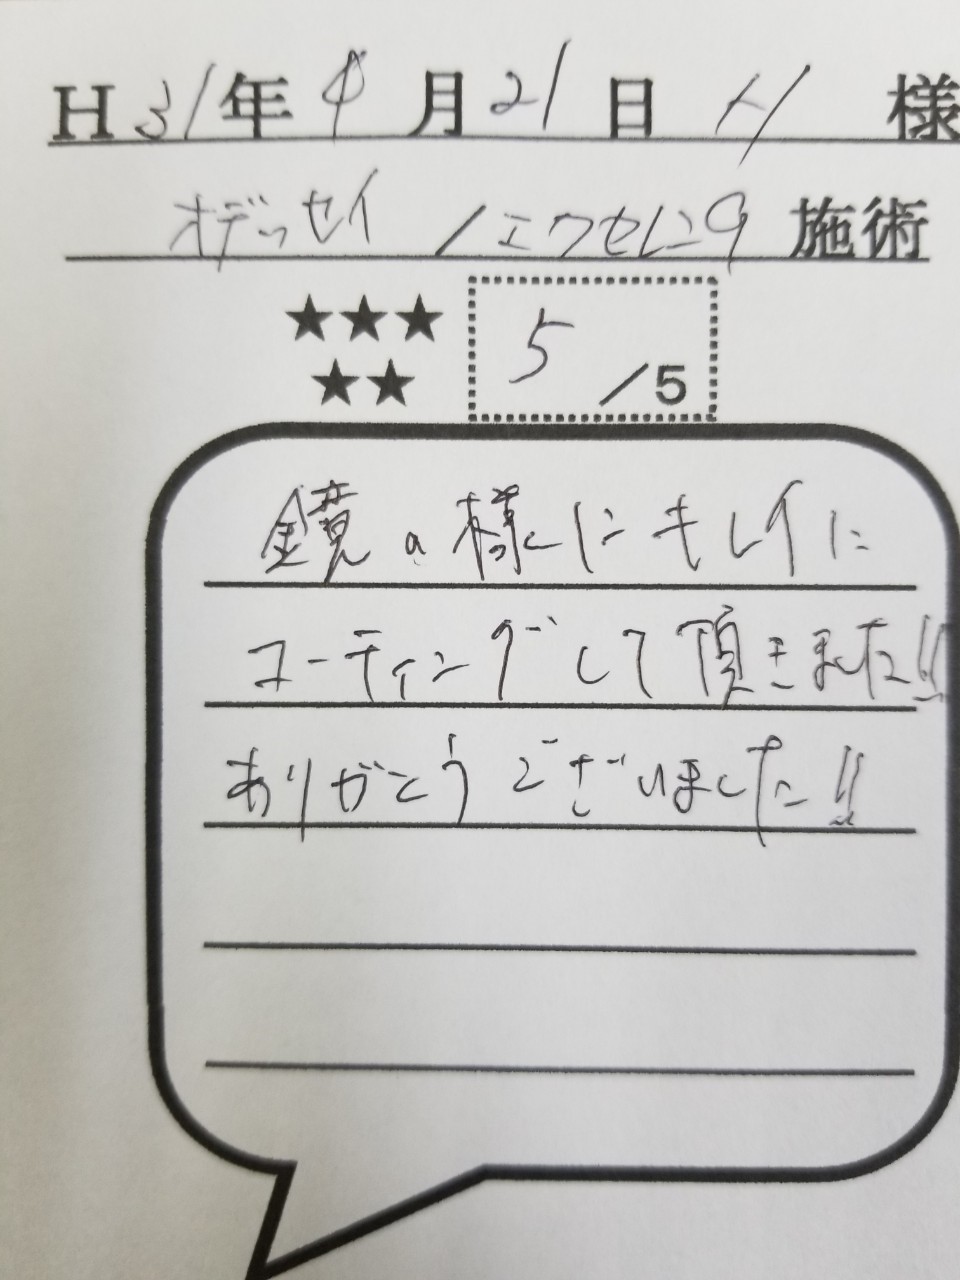 H31年4月21日 H 様
オデッセイ / エクセレーヌ 施術
★★★
★★
5 /5
鏡の様にキレイに
コーティングして頂きました!!
ありがとうございました!!